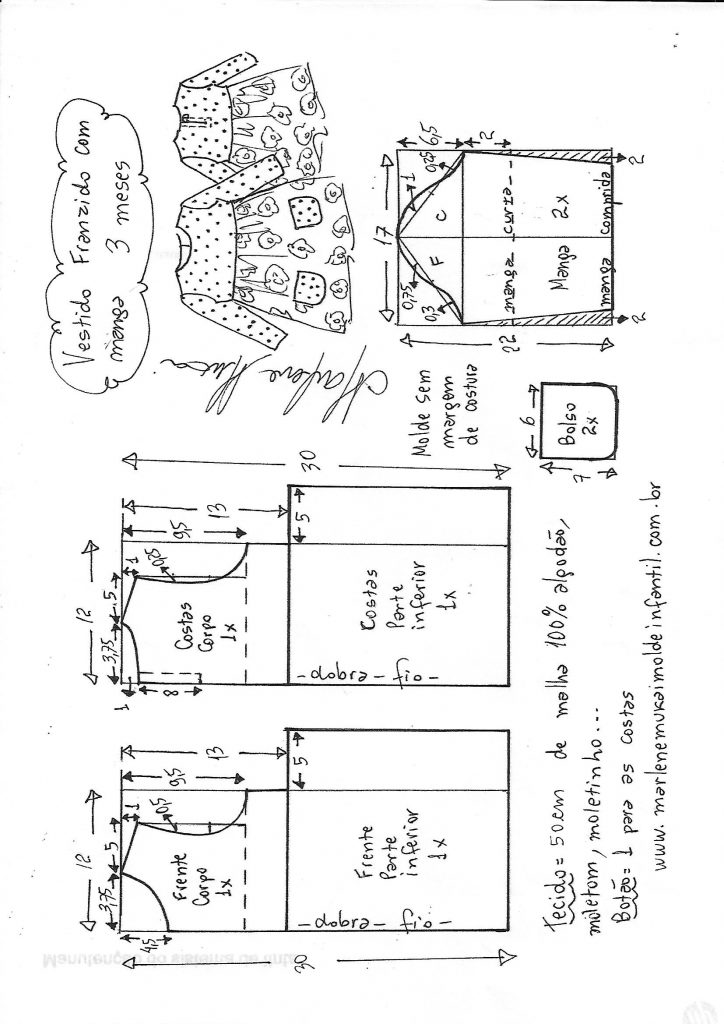 Vestido Franzido com
manga 3 meses
17
6,5
2
0,25
1
0,75
0,3
F
C
manga - curta -
Manga 2x
manga comprida
22
2
2
Molde sem
margem
de costura
6
7
Bolso
2x
12
3,75
5
1
0,5
4,5
9,5
13
5
30
Frente
Corpo
1x
Frente
Parte
inferior
1x
- dobra - fio -
12
3,75
5
1
0,25
1
8
9,5
13
5
30
Costas
Corpo
1x
Costas
Parte
inferior
1x
- dobra - fio -
Tecido = 50cm de malha 100% algodão,
moletom, moletinho...
Botão = 1 para as costas
www.marlenemukaimoldeinfantil.com.br